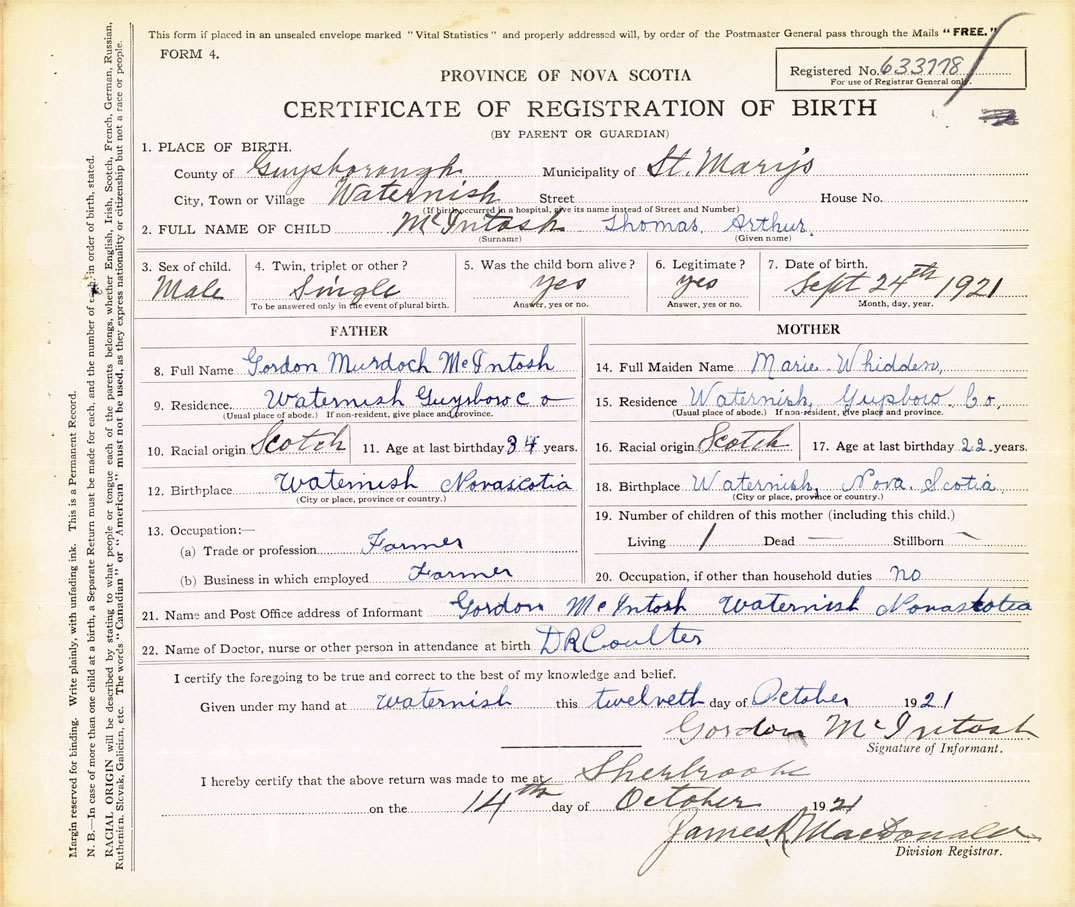 This form if placed in an unsealed envelope marked "Vital Statistics" and properly addressed will, by order of the Postmaster General pass through the Mails "FREE."
FORM 4.
Registered No. 633778
For use of Registrar General only.
PROVINCE OF NOVA SCOTIA
CERTIFICATE OF REGISTRATION OF BIRTH
(BY PARENT OR GUARDIAN)
1. PLACE OF BIRTH.
County of Guysborough Municipality of St. Mary's
City, Town or Village Waternish Street House No.
(If birth occurred in a hospital, give its name instead of Street and Number)
2. FULL NAME OF CHILD McIntosh Thomas Arthur.
(Surname) (Given name)
3. Sex of child. 4. Twin, triplet or other? 5. Was the child born alive? 6. Legitimate? 7. Date of birth.
Male Single yes yes Sept 24th 1921
To be answered only in the event of plural birth. Answer, yes or no. Answer, yes or no. Month, day, year.
FATHER
8. Full Name Gordon Murdoch McIntosh
9. Residence. Waternish Guysboro Co
(Usual place of abode.) If non-resident, give place and province.
10. Racial origin Scotch 11. Age at last birthday 34 years.
12. Birthplace Waternish Novascotia
(City or place, province or country.)
13. Occupation:—
(a) Trade or profession Farmer
(b) Business in which employed Farmer
MOTHER
14. Full Maiden Name Marie Whidden,
15. Residence Waternish, Guysboro Co,
(Usual place of abode.) If non-resident, give place and province.
16. Racial origin Scotch 17. Age at last birthday 22 years.
18. Birthplace Waternish, Nova. Scotia
(City or place, province or country.)
19. Number of children of this mother (including this child.)
Living 1 Dead — Stillborn —
20. Occupation, if other than household duties no
21. Name and Post Office address of Informant Gordon McIntosh Waternish Novascotia
22. Name of Doctor, nurse or other person in attendance at birth DR Coulter
I certify the foregoing to be true and correct to the best of my knowledge and belief.
Given under my hand at waternish this twelveth day of October 1921
Gordon McIntosh
Signature of Informant.
I hereby certify that the above return was made to me at Sherbrooke
on the 14th day of October 1921
James R. MacDonald
Division Registrar.
Margin reserved for binding. Write plainly, with unfading ink. This is a Permanent Record.
N. B.—In case of more than one child at a birth, a Separate Return must be made for each, and the number of each in order of birth, stated.
RACIAL ORIGIN will be described by stating to what people or tongue each of the parents belongs, whether English, Irish, Scotch, French, German, Russian,
Ruthenian, Slovak, Galician, etc. The words "Canadian" or "American" must not be used, as they express nationality or citizenship but not a race or people.